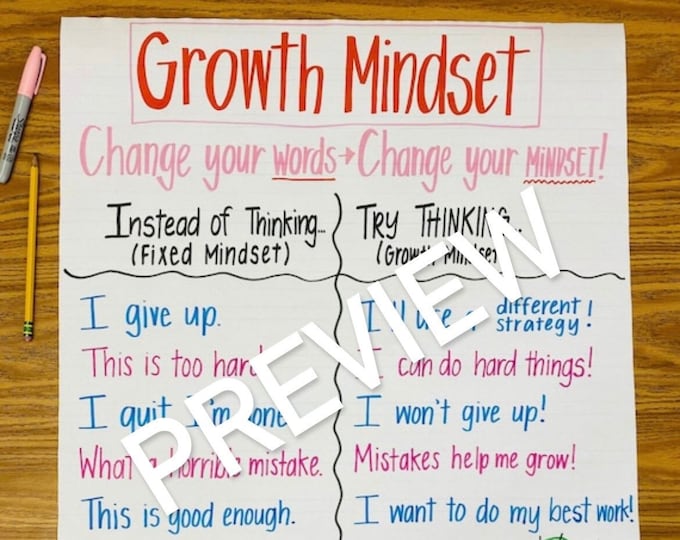 Growth Mindset
Change your words → Change your MINDSET!
Instead of Thinking...
(Fixed Mindset)
TRY THINKING...
(Growth Mindset
I give up.
This is too hard
I quit I'm done
What a horrible mistake.
This is good enough.
I'll use a different strategy!
I can do hard things!
I won't give up!
Mistakes help me grow!
I want to do my best work!
PREVIEW
Sharpie